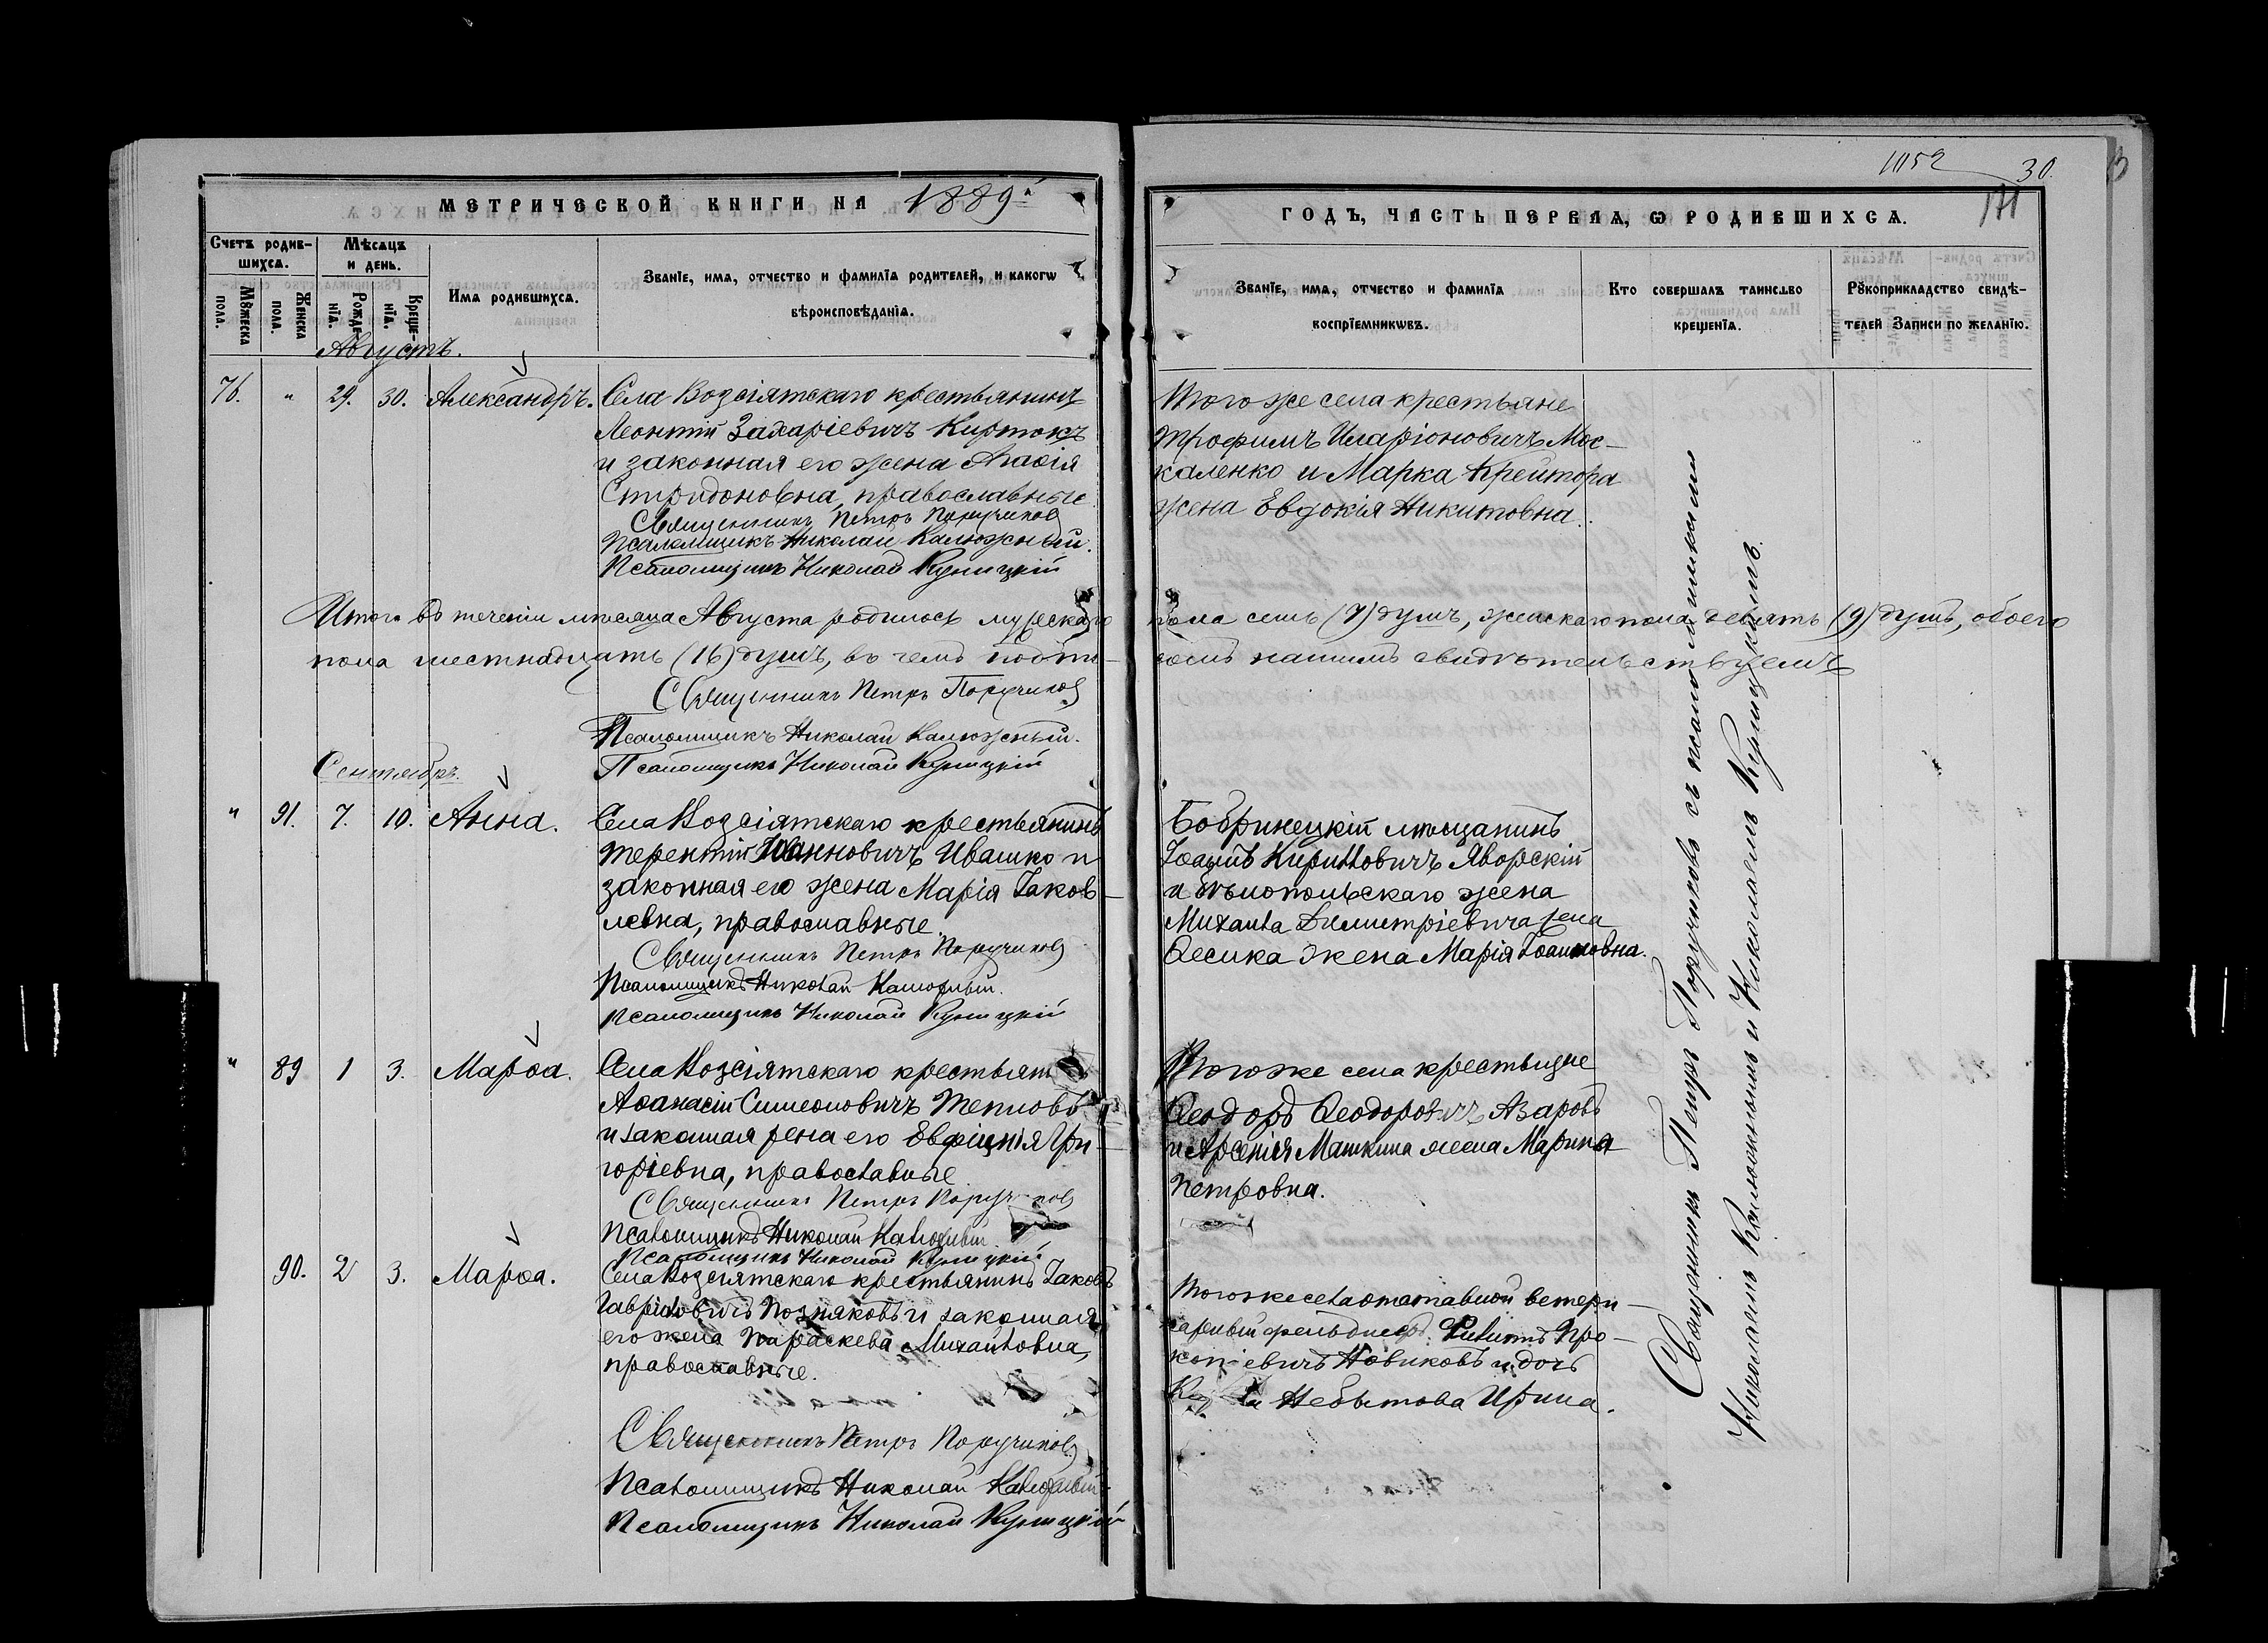 МЕТРИЧЕСКОЙ КНИГИ НА 1889й
Счетъ родив-
шихсѧ.
Мѣсѧцъ
и день.
Мꙋжеска
пола.
Женска
пола.
Рожде-
нїѧ.
Креще-
нїѧ.
Имѧ родившихсѧ.
Званїе, имѧ, отчество и фамилїѧ родителей, и какогѡ
вѣроисповѣданїѧ.
Августъ.
76. " 29. 30. Александръ.
Села Возсіятскаго крестьянинъ
Леонтій Захаріевичъ Киртокъ
и законная его жена Агафія
Спиридоновна, православные
Священникъ Петръ Поручиковъ
Псаломщикъ Николай Калюжный.
Псаломщикъ Николай Куницкій
Итого въ теченіи мѣсяца Августа родилось мужескаго
пола шестнадцать (16) душъ, въ чемъ подпи-
Священникъ Петръ Поручиковъ
Псаломщикъ Николай Калюжный.
Псаломщикъ Николай Куницкій
Сентябрь.
" 91. 7. 10. Анна.
Села Возсіятскаго крестьянинъ
Терентій Іоанновичъ Ивашко и
законная его жена Марія Іаков-
левна, православные.
Священникъ Петръ Поручиковъ
Псаломщикъ Николай Калюжный.
Псаломщикъ Николай Куницкій
" 89 1 3. Марѳа.
Села Возсіятскаго крестьян
Аѳанасій Симеоновичъ Тепловъ
и законная жена его Гри-
горіевна, православные.
Священникъ Петръ Поручиковъ
Псаломщикъ Николай Калюжный.
Псаломщикъ Николай Куницкій
90. 2 3. Марѳа.
Села Возсіятскаго крестьянинъ Іаковъ
Гавріиловичъ Позняковъ и законная
его жена Параскева Михайловна,
православные.
Священникъ Петръ Поручиковъ
Псаломщикъ Николай Калюжный
Псаломщикъ Николай Куницкій
1152
30.
171
ГОДЪ, ЧАСТЬ ПЕРВАѦ, Ѡ РОДИВШИХСѦ.
Званїе, имѧ, отчество и фамилїѧ
воспрїемникѡвъ.
Кто совершалъ таинство
крещенїѧ.
Рꙋкоприкладство свидѣ-
телей Записи по желанїю.
Того же села крестьяне
Трофимъ Иларіоновичъ Мос-
каленко и Марка Крейтора
жена Евдокія Никитовна.
пола семь (7) душъ, женскаго пола девять (9) душъ, обоего
сомъ нашимъ свидѣтельствуемъ
Бобринецкій мѣщанинъ
Кирилловичъ Яворскій
и жена
Михаила Димитріевича
жена Марія Іоанновна.
Того же села крестьяне
Ѳеодоръ Ѳеодоровичъ Азаровъ
и Арсенія Машкина жена Марина
Петровна.
Того же села отставной ветери-
нарный фельдшеръ Филиппъ Про-
копіевичъ Новиковъ и дочь
Небытова Ирина.
Священникъ Петръ Поручиковъ съ псаломщиками
Николаемъ Калюжнымъ и Николаемъ Куницкимъ.